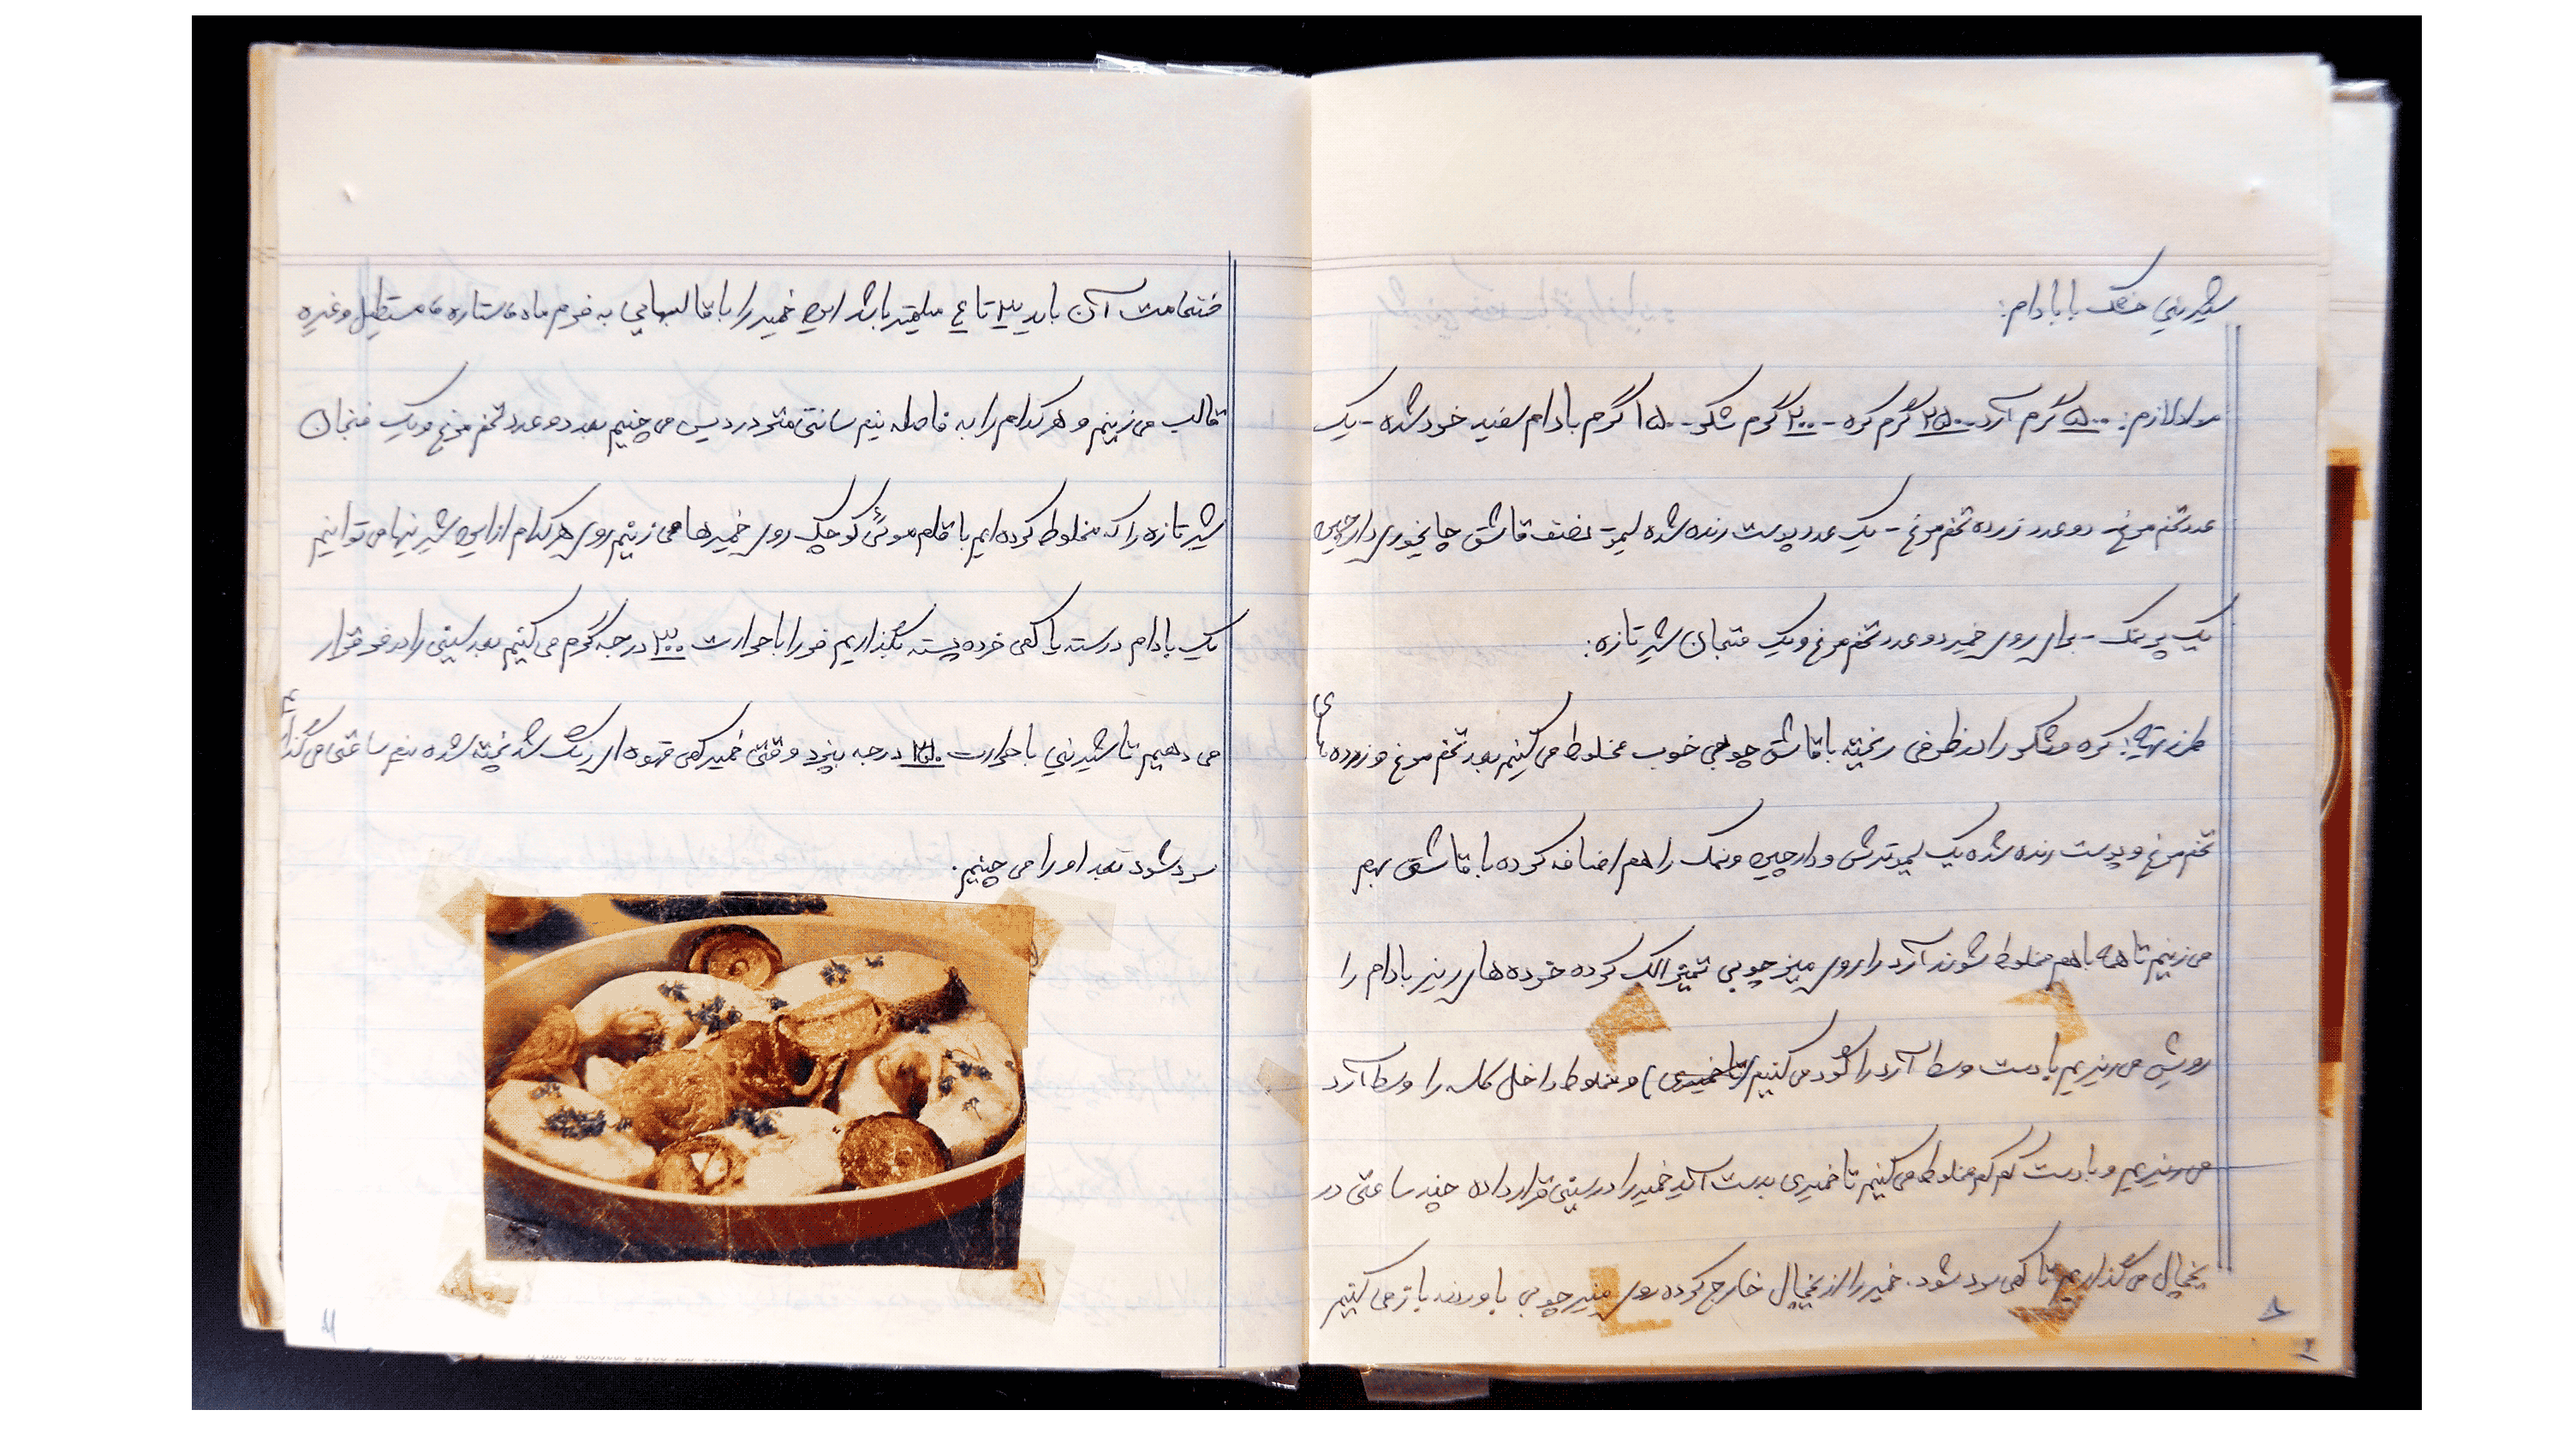 شیرینی خشک با بادام:
مواد لازم: ۵۰۰ گرم آرد - ۲۵۰ گرم کره - ۲۰۰ گرم شکر - ۱۵۰ گرم بادام سفید خرد شده - یک
عدد تخم مرغ - دو عدد زرده تخم مرغ - یک عدد پوست رنده شده لیمو - نصف قاشق چایخوری دارچین
یک پر نمک - برای روی خمیر دو عدد تخم مرغ و یک فنجان شیر تازه:
طرز تهیه: کره و شکر را در ظرفی ریخته با قاشق چوبی خوب مخلوط می کنیم بعد تخم مرغ و زرده های
تخم مرغ و پوست رنده شده یک لیمو ترش و دارچین و نمک را هم اضافه کرده با قاشق بهم
می زنیم تا همه با هم مخلوط شوند آرد را روی میز چوبی تمیز الک کرده خرده های ریز بادام را
رویش می ریزیم با دست وسط آرد را گود می کنیم (تا خمیری) و مخلوط داخل کاسه را وسط آرد
می ریزیم و با دست کم کم مخلوط می کنیم تا خمیری بدست آید خمیر را در سینی قرار داده چند ساعتی در
یخچال می گذاریم تا کمی سرد شود. خمیر را از یخچال خارج کرده روی میز چوبی با وردنه باز می کنیم
۸
ضخامت آن باید ۳ تا ۴ میلیمتر باشد این خمیر را با قالبهایی به فرم ماه، ستاره، مستطیل و غیره
قالب می زنیم و هر کدام را به فاصله نیم سانتی متر در دیس می چنیم بعد دو عدد تخم مرغ و یک فنجان
شیر تازه را که مخلوط کرده ایم با قلم موئی کوچک روی خمیرها می زنیم روی هر کدام از این شیرینیها می توانیم
یک بادام درسته یا کمی خرده پسته بگذاریم فر را با حرارت ۲۰۰ درجه گرم می کنیم بعد سینی را در فر قرار
می دهیم تا شیرینی با حرارت ۱۷۵ درجه بپزد وقتی خمیر کمی قهوه ای رنگ شد پخته شده نیم ساعتی می گذاریم
سرد شود بعد او را می چنیم.